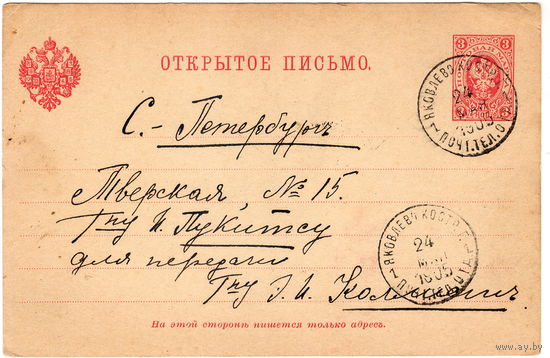 ОТКРЫТОЕ ПИСЬМО.
3 3
ЯКОВЛЕВО КОСТР. Г.
24
МАЙ
1905
ПОЧТ.ТЕЛ.О
С.-Петербургъ
Тверская, № 15.
Гну И. Лукитсу
для передачи
Гну Э. И.
ЯКОВЛЕВО КОСТР. Г.
24
1905
На этой сторонѣ пишется только адресъ.
www.ay.by